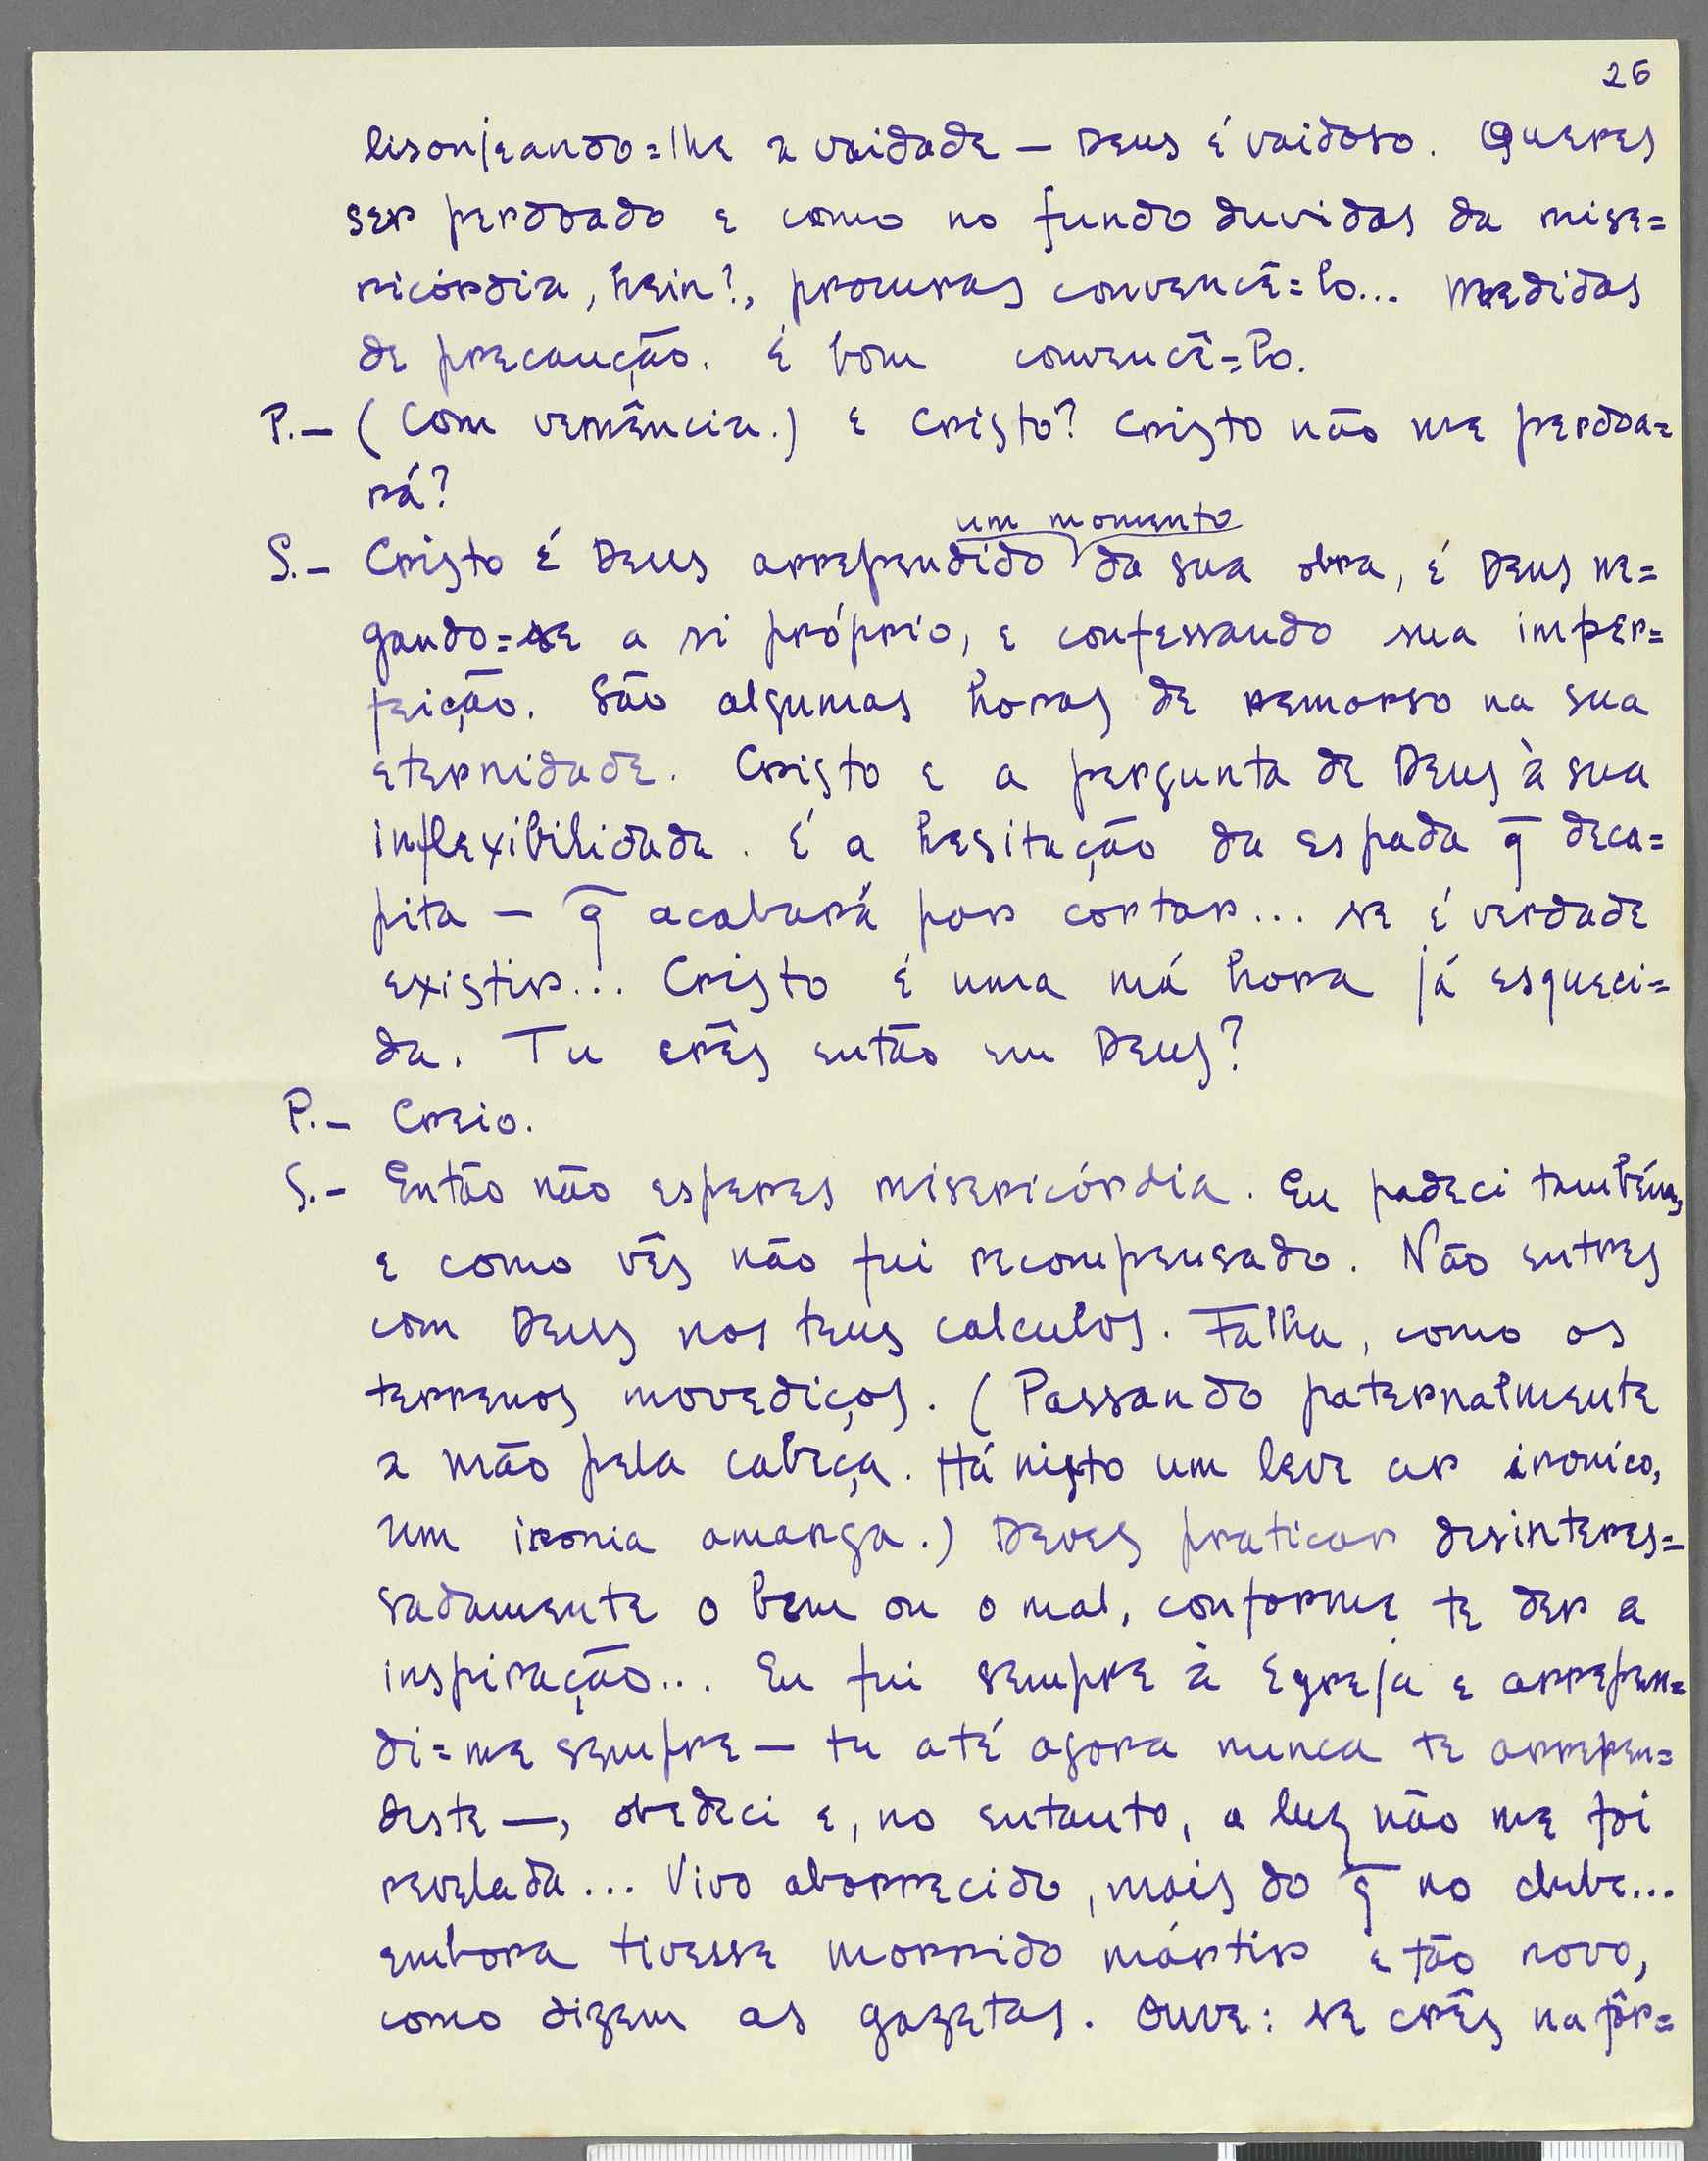 26
lisonjeando=lhe a vaidade — Deus é vaidoso. Queres
ser perdoado e como no fundo duvidas da mise=
ricórdia, hein?, procuras convencê=lo... medidas
de precaução. É bom convencê=lo.
P.— (Com vemência.) E Cristo? Cristo não me perdoa=
rá?
um momento
S.— Cristo é Deus arrependido da sua obra, é Deus ne=
gando=se a si próprio, e confessando sua imper=
feição. São algumas horas de remorso na sua
eternidade. Cristo e a pergunta de Deus à sua
inflexibilidade. É a hesitação da espada q̄ deca=
pita — q̄ acabará por cortar... se é verdade
existir... Cristo é uma má hora já esqueci=
da. Tu crês então em Deus?
P.— Creio.
S.— Então não esperes misericórdia. Eu padeci também,
e como vês não fui recompensado. Não entres
com Deus nos teus calculos. Falha, como os
terrenos movediços. (Passando paternalmente
a mão pela cabeça. Há nisto um leve ar ironico,
um ironia amarga.) Deves praticar desinteres=
sadamente o bem ou o mal, conforme te der a
inspiração... Eu fui sempre à Egreja e arrepen=
di=me sempre — tu até agora nunca te arrepen=
deste —, obedeci e, no entanto, a luz não me foi
revelada... Vivo aborrecido, mais do q̄ no clube...
embora tivesse morrido mártir e tão novo,
como dizem as gazetas. Ouve: se crês na fôr=